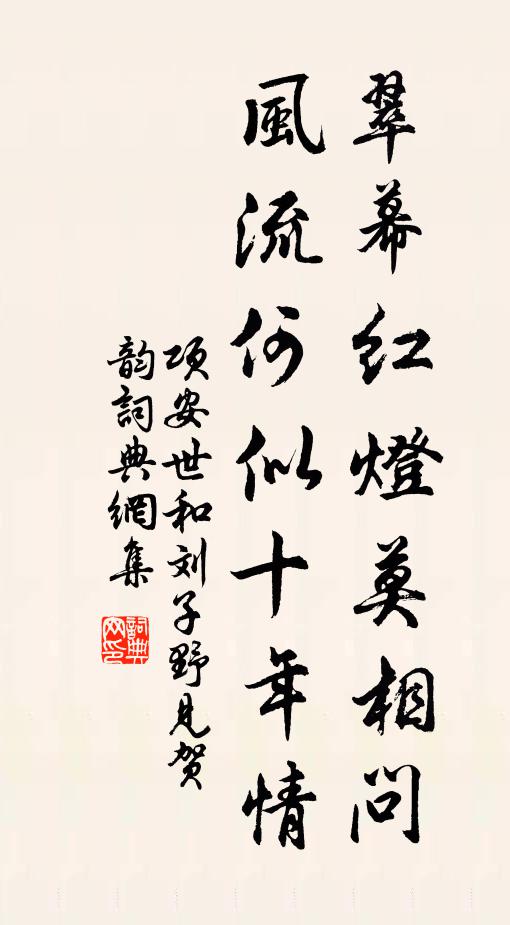 翠幕红燈莫相問
風流何似十年情
项安世和刘子野見贺
韵詞典網集
詞典
网印